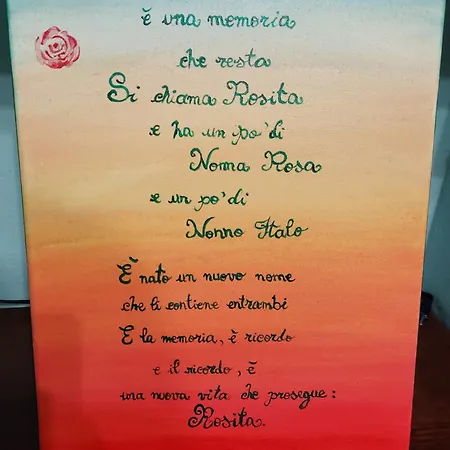 è una memoria
che resta
Si chiama Rosita
e ha un po' di
Nonna Rosa
e un po' di
Nonno Italo
E' nato un nuovo nome
che li contiene entrambi
E la memoria, è ricordo
e il ricordo, è
una nuova vita che prosegue:
Rosita.